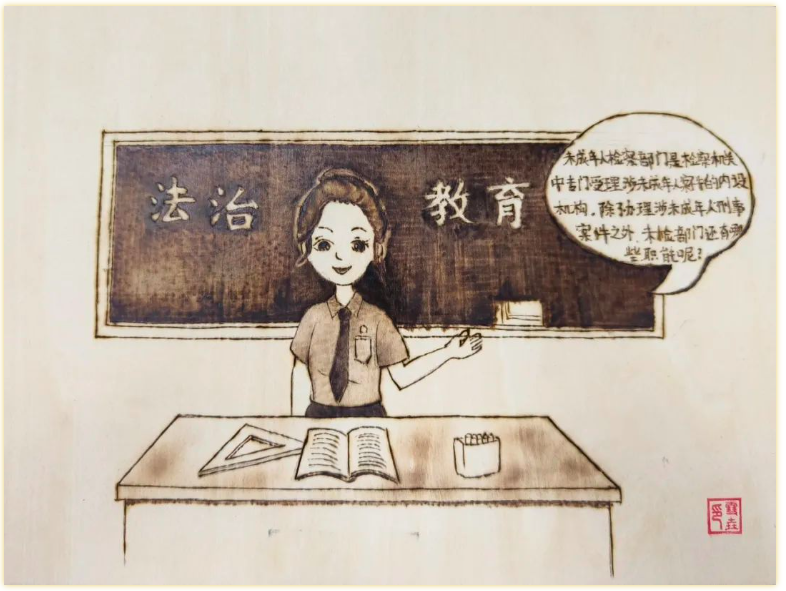 法治 教育
未成年人检察部门是检察机关
中专门受理涉未成年人案件的内设
机构，除了办理涉未成年人刑事
案件之外，未检部门还有哪
些职能呢？